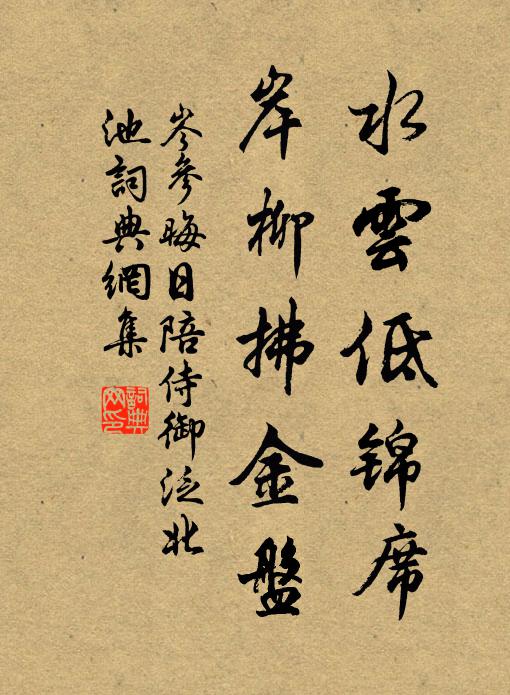 水雲低錦席
岸柳拂金盤
岑參晦日陪侍御泛北
池詞典網集
詞典
网印